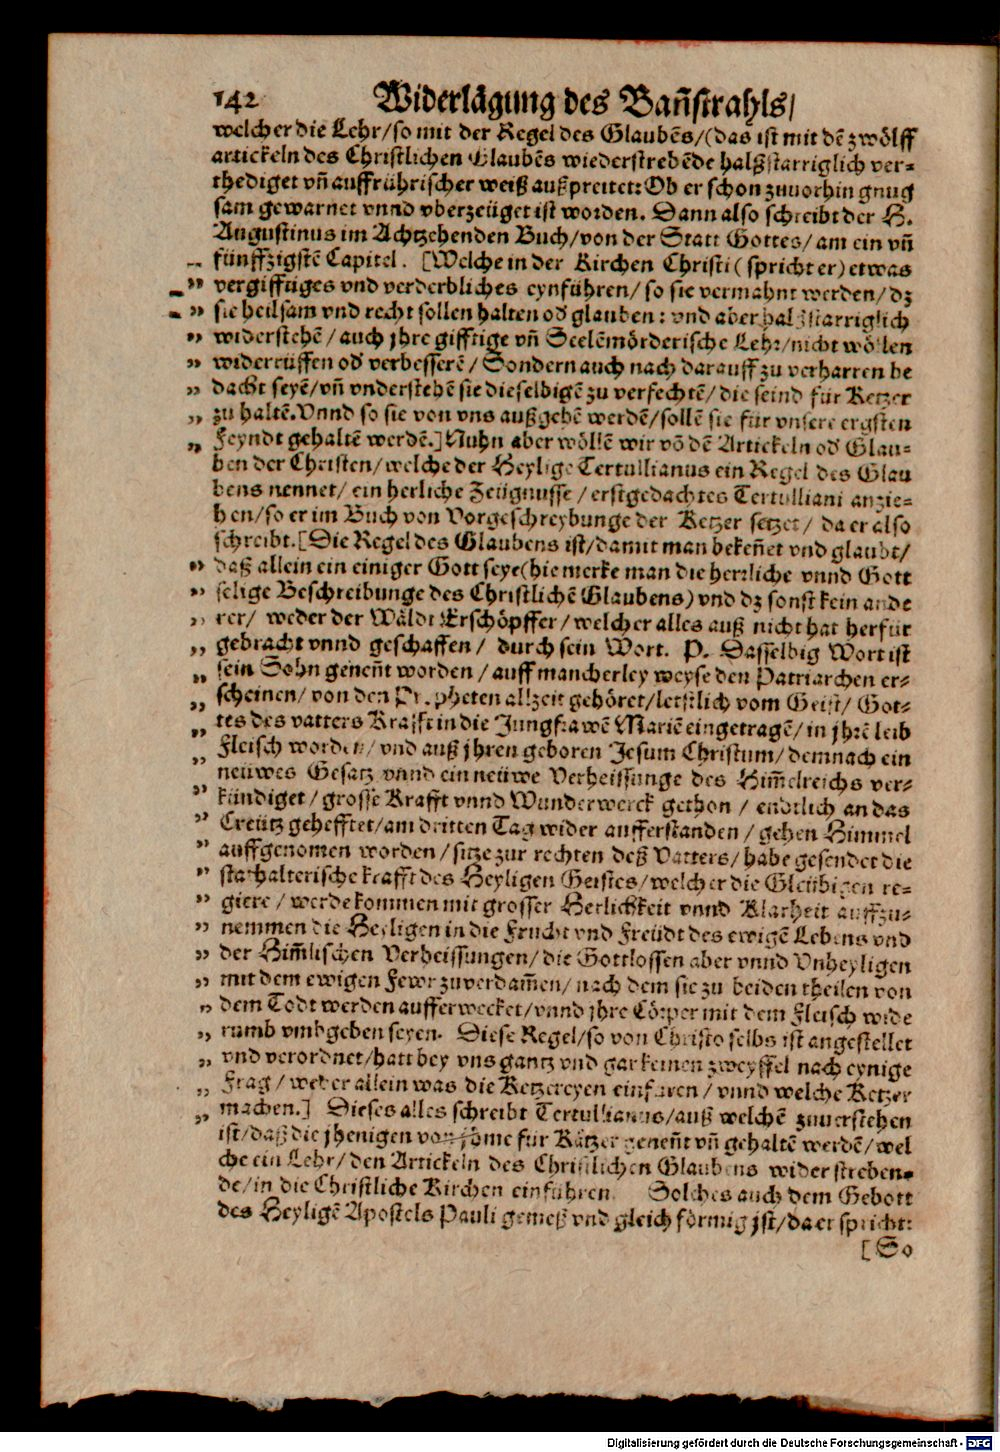 142 Widerlågung des Bañstrahls/
welcher die Lehr/so mit der Regel des Glaubẽs/(das ist mit dẽ zwölff
artickeln des Christlichen Glaubẽs wiederstrebẽde halßstarriglich ver-
thediget vñ auffrührischer weiß außpreitet: Ob er schon zuvorhin gnug
sam gewarnet vnnd vberzeüget ist worden. Dann also schreibt der H.
Augustinus im Achtzehenden Buch/von der Statt Gottes/am ein vñ
fünffzigstẽ Capitel. [Welche in der Kirchen Christi (spricht er) etwas
" vergifftiges vnd verderbliches eynführen/ so sie vermahnt werden/dz
" sie heilsam vnd recht sollen halten od̃ glauben: vnd aber halßstarriglich
" widerstehẽ/auch jhre gifftige vñ Seelẽmörderische Lehr/nicht wöllen
" widerrüffen od̃ verbesserẽ/ Sondern auch nach darauff zu verharren be
" dacht seyẽ/vñ vnderstehẽ sie dieselbigẽ zu verfechtẽ/die seind für Ketzer
" zu haltẽ. Vnnd so sie von vns außgehẽ werdẽ/sollẽ sie für vnsere ergsten
" Feyndt gehaltẽ werdẽ.] Nuhn aber wöllẽ wir võ dẽ Artickeln od̃ Glau-
ben der Christen/welche der Heylige Tertullianus ein Regel des Glau
bens nennet/ ein herliche Zeügnusse/ erstgedachtes Tertulliani anzie-
hen/so er im Buch von Vorgeschreybunge der Ketzer setzet/ da er also
schreibt. [Die Regel des Glaubens ist/damit man bekeñet vnd glaubt/
" daß allein ein einiger Gott seye(hie merke man die herrliche vnnd Gott
" selige Beschreibunge des Christlichẽ Glaubens) vnd dz sonst kein ande
" rer/ weder der Wäldt Erschöpffer/welcher alles auß nicht hat herfür
" gebracht vnnd geschaffen/ durch sein Wort. P. Dasselbig Wort ist
" sein Sohn geneñt worden/ auff mancherley weyse den Patriarchen er-
" scheinen/von den Propheten allzeit gehöret/letstlich vom Geist/ Got-
" tes des vatters Krafft in die Jungfrawẽ Mariẽ eingetragẽ/in jhrẽ leib
" Fleisch worden/ vnd auß jhren geboren Jesum Christum/demnach ein
neüwes Gesatz vnnd ein neüwe Verheissunge des Him̃elreichs ver-
" kündiget/grosse Krafft vnnd Wunderwerck gethon/ endtlich an das
" Creütz gehefftet/am dritten Tag wider aufferstanden/gehen Himmel
" auffgenomen worden/sitze zur rechten deß Vatters/habe gesendet die
" stathalterische krafft des Heyligen Geistes/welcher die Gleübigen re-
" giere/werde kommen mit grosser Herlichkeit vnnd Klarheit auffzu-
" nemmen die Heyligen in die Frucht vnd Freüdt des ewigẽ Lebens vnd
" der Him̃lischen Verheissungen/die Gottlossen aber vnnd Vnheyligen
" mit dem ewigen Fewr zuverdam̃en/nach dem sie zu beiden theilen von
" dem Todt werden aufferwecket/vnnd jhre Cörper mit dem Fleisch wide
" rumb vmbgeben seyen. Diese Regel/so von Christo selbs ist angestellet
" vnd verordnet/hatt bey vns gantz vnd gar keinen zweyffel nach eynige
" Frag/weder allein was die Ketzereyen einfüren/vnnd welche Ketzer
" machen.] Dieses alles schreibt Tertullianus/auß welchẽ zuverstehen
ist/daß die jhenigen von jhme für Kätzer geneñt vñ gehaltẽ werdẽ/wel
che ein Lehr/den Artickeln des Christlichen Glaubens widerstreben-
de/in die Christliche Kirchen einführen. Solches auch dem Gebott
des Heyligẽ Apostels Pauli gemeß vnd gleichförmig jst/da er spricht:
[So
Digitalisierung gefördert durch die Deutsche Forschungsgemeinschaft - DFG